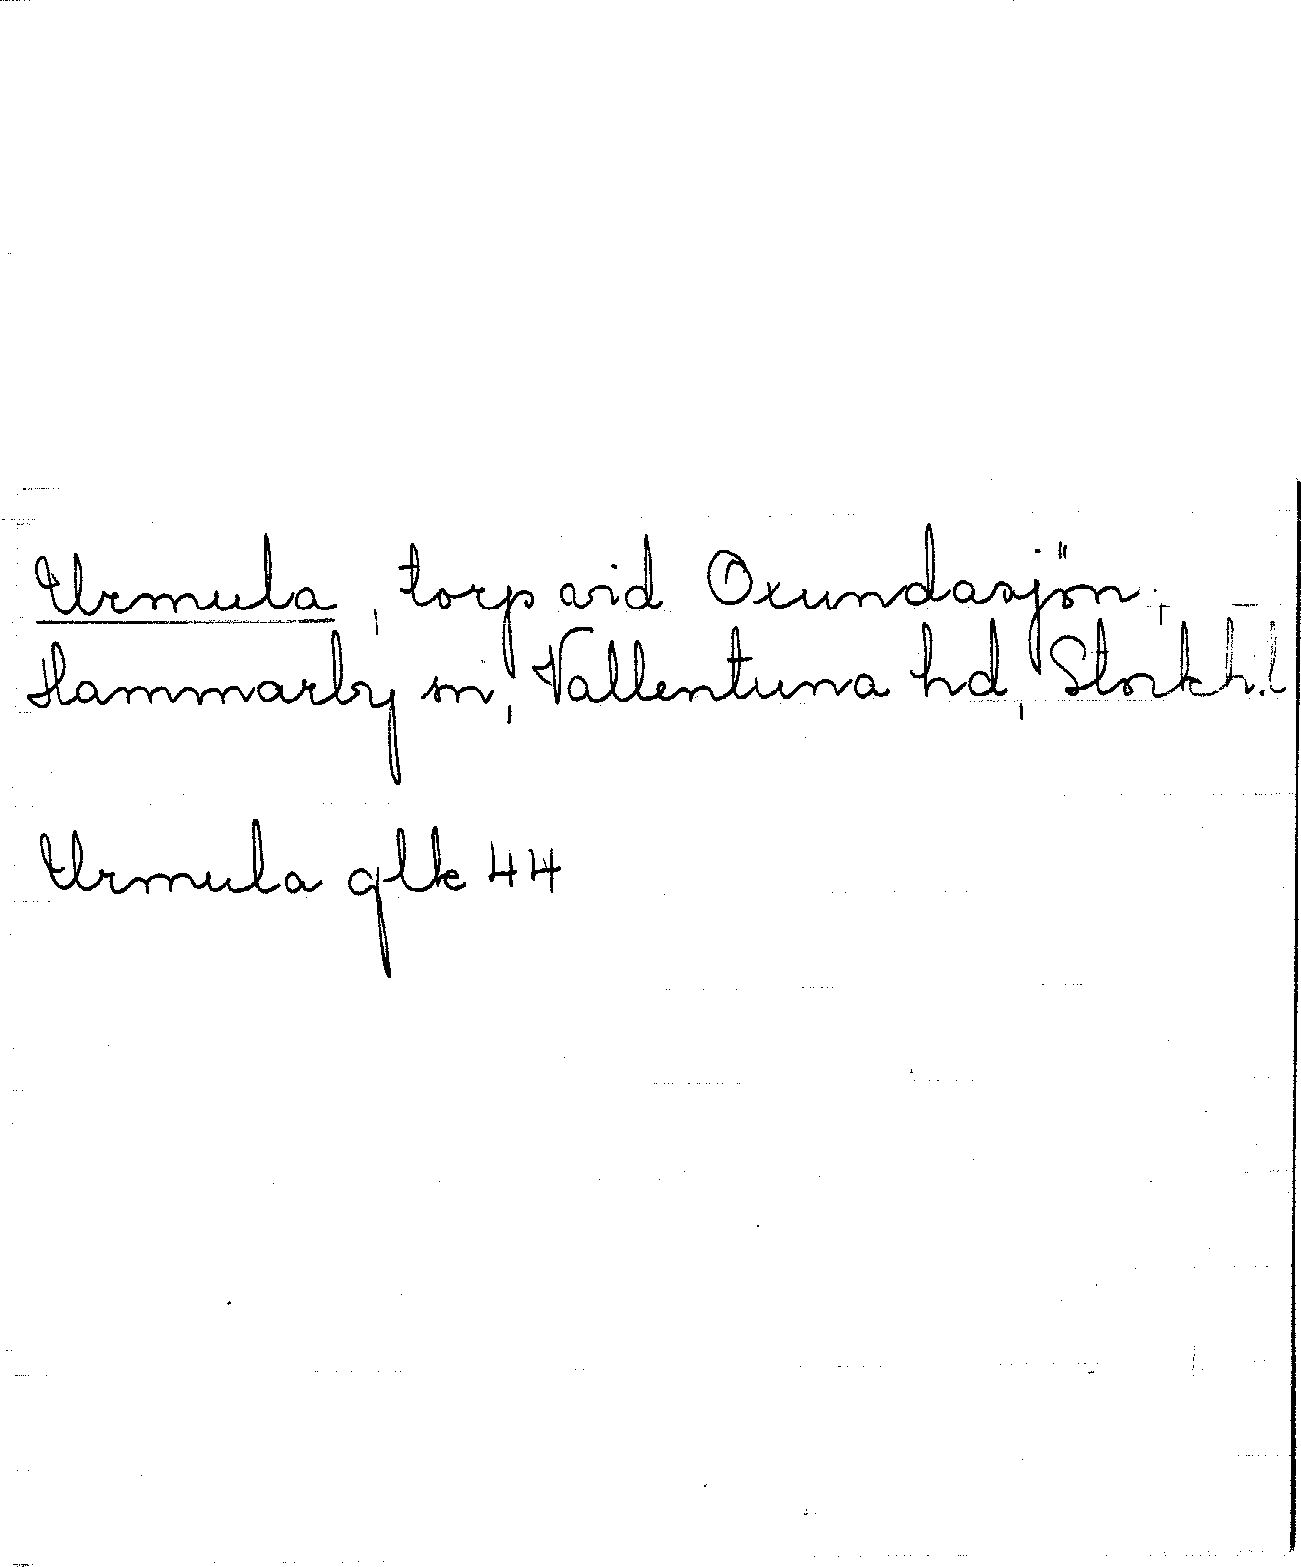 Urmula, torp vid Oxundasjön,
Hammarby sn, Vallentuna hd, Stockh.l
Urmula glk 44